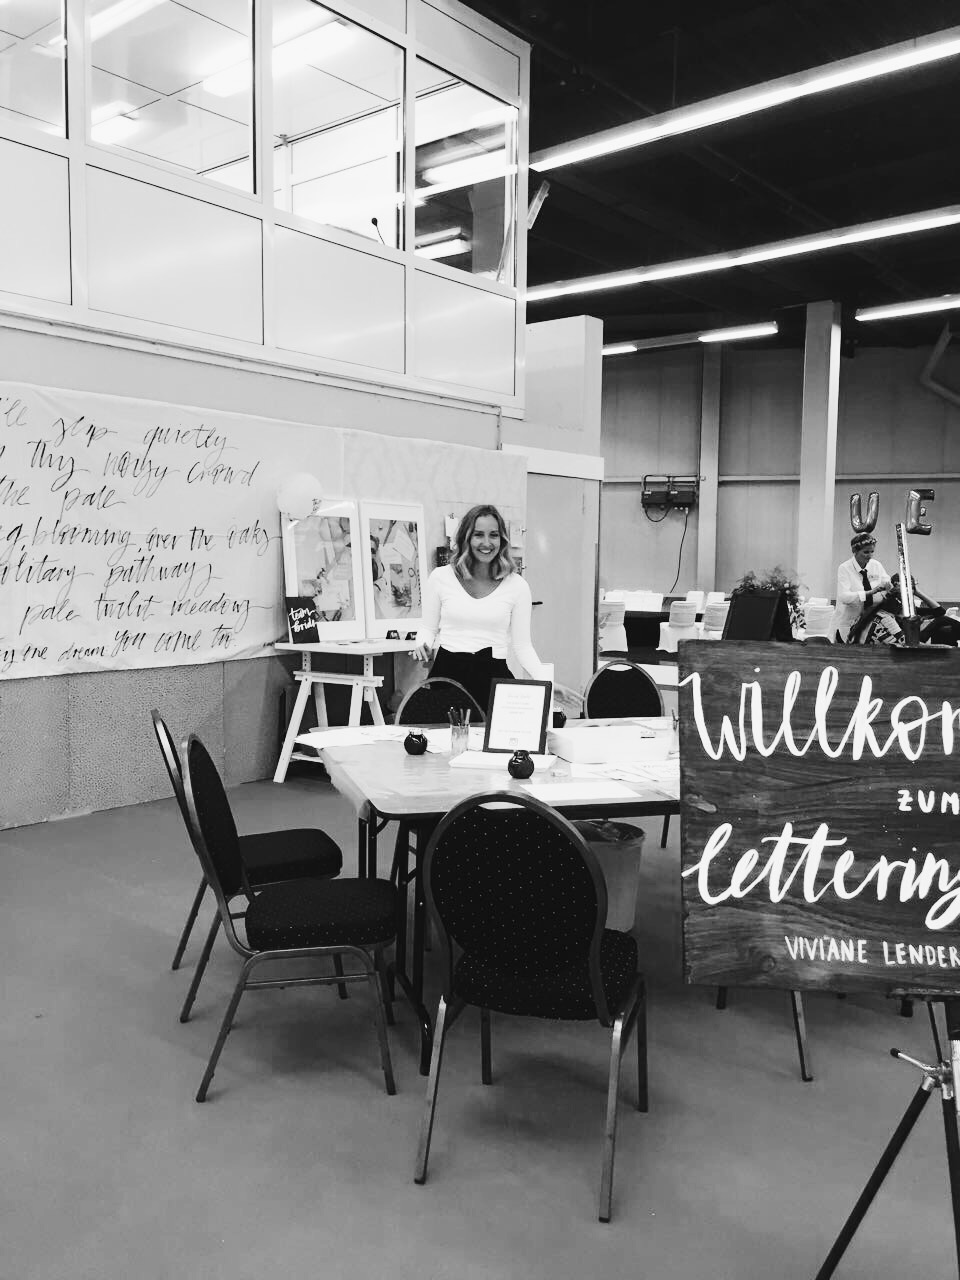 I'll step quietly
thy noisy crowd
the pale
blooming, over the oaks
solitary pathways
pale twilit meadows
one dream you come to.
team
bride
U E
Willkom
ZUM
lettering
VIVIANE LENDER